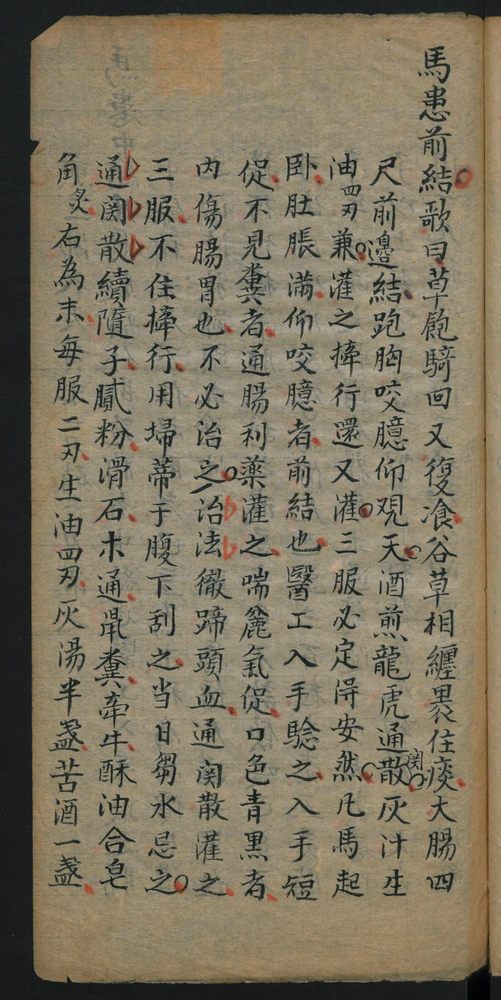 馬患前結歌曰草飽騎回又復飡谷草相纏裹住痰大腸四
尺前邉結跑胸咬臆仰观天酒煎龍虎通関散灰汁生
油四刄兼灌之捧行還又灌三服必定淂安然凡馬起
卧肚脹滿仰咬臆者前結也醫工入手驗之入手短
促不見糞者通腸利藥灌之喘麄氣促口色青黑者
内傷腸胃也不必治之治法徹蹄頭血通関散灌之
三服不住捧行用埽蒂于腹下刮之当日芻水忌之
通関散續隨子膩粉滑石木通䑕糞牵牛酥油合皂
角炙右為末每服二刄生油四刄灰湯半盞苦酒一盞